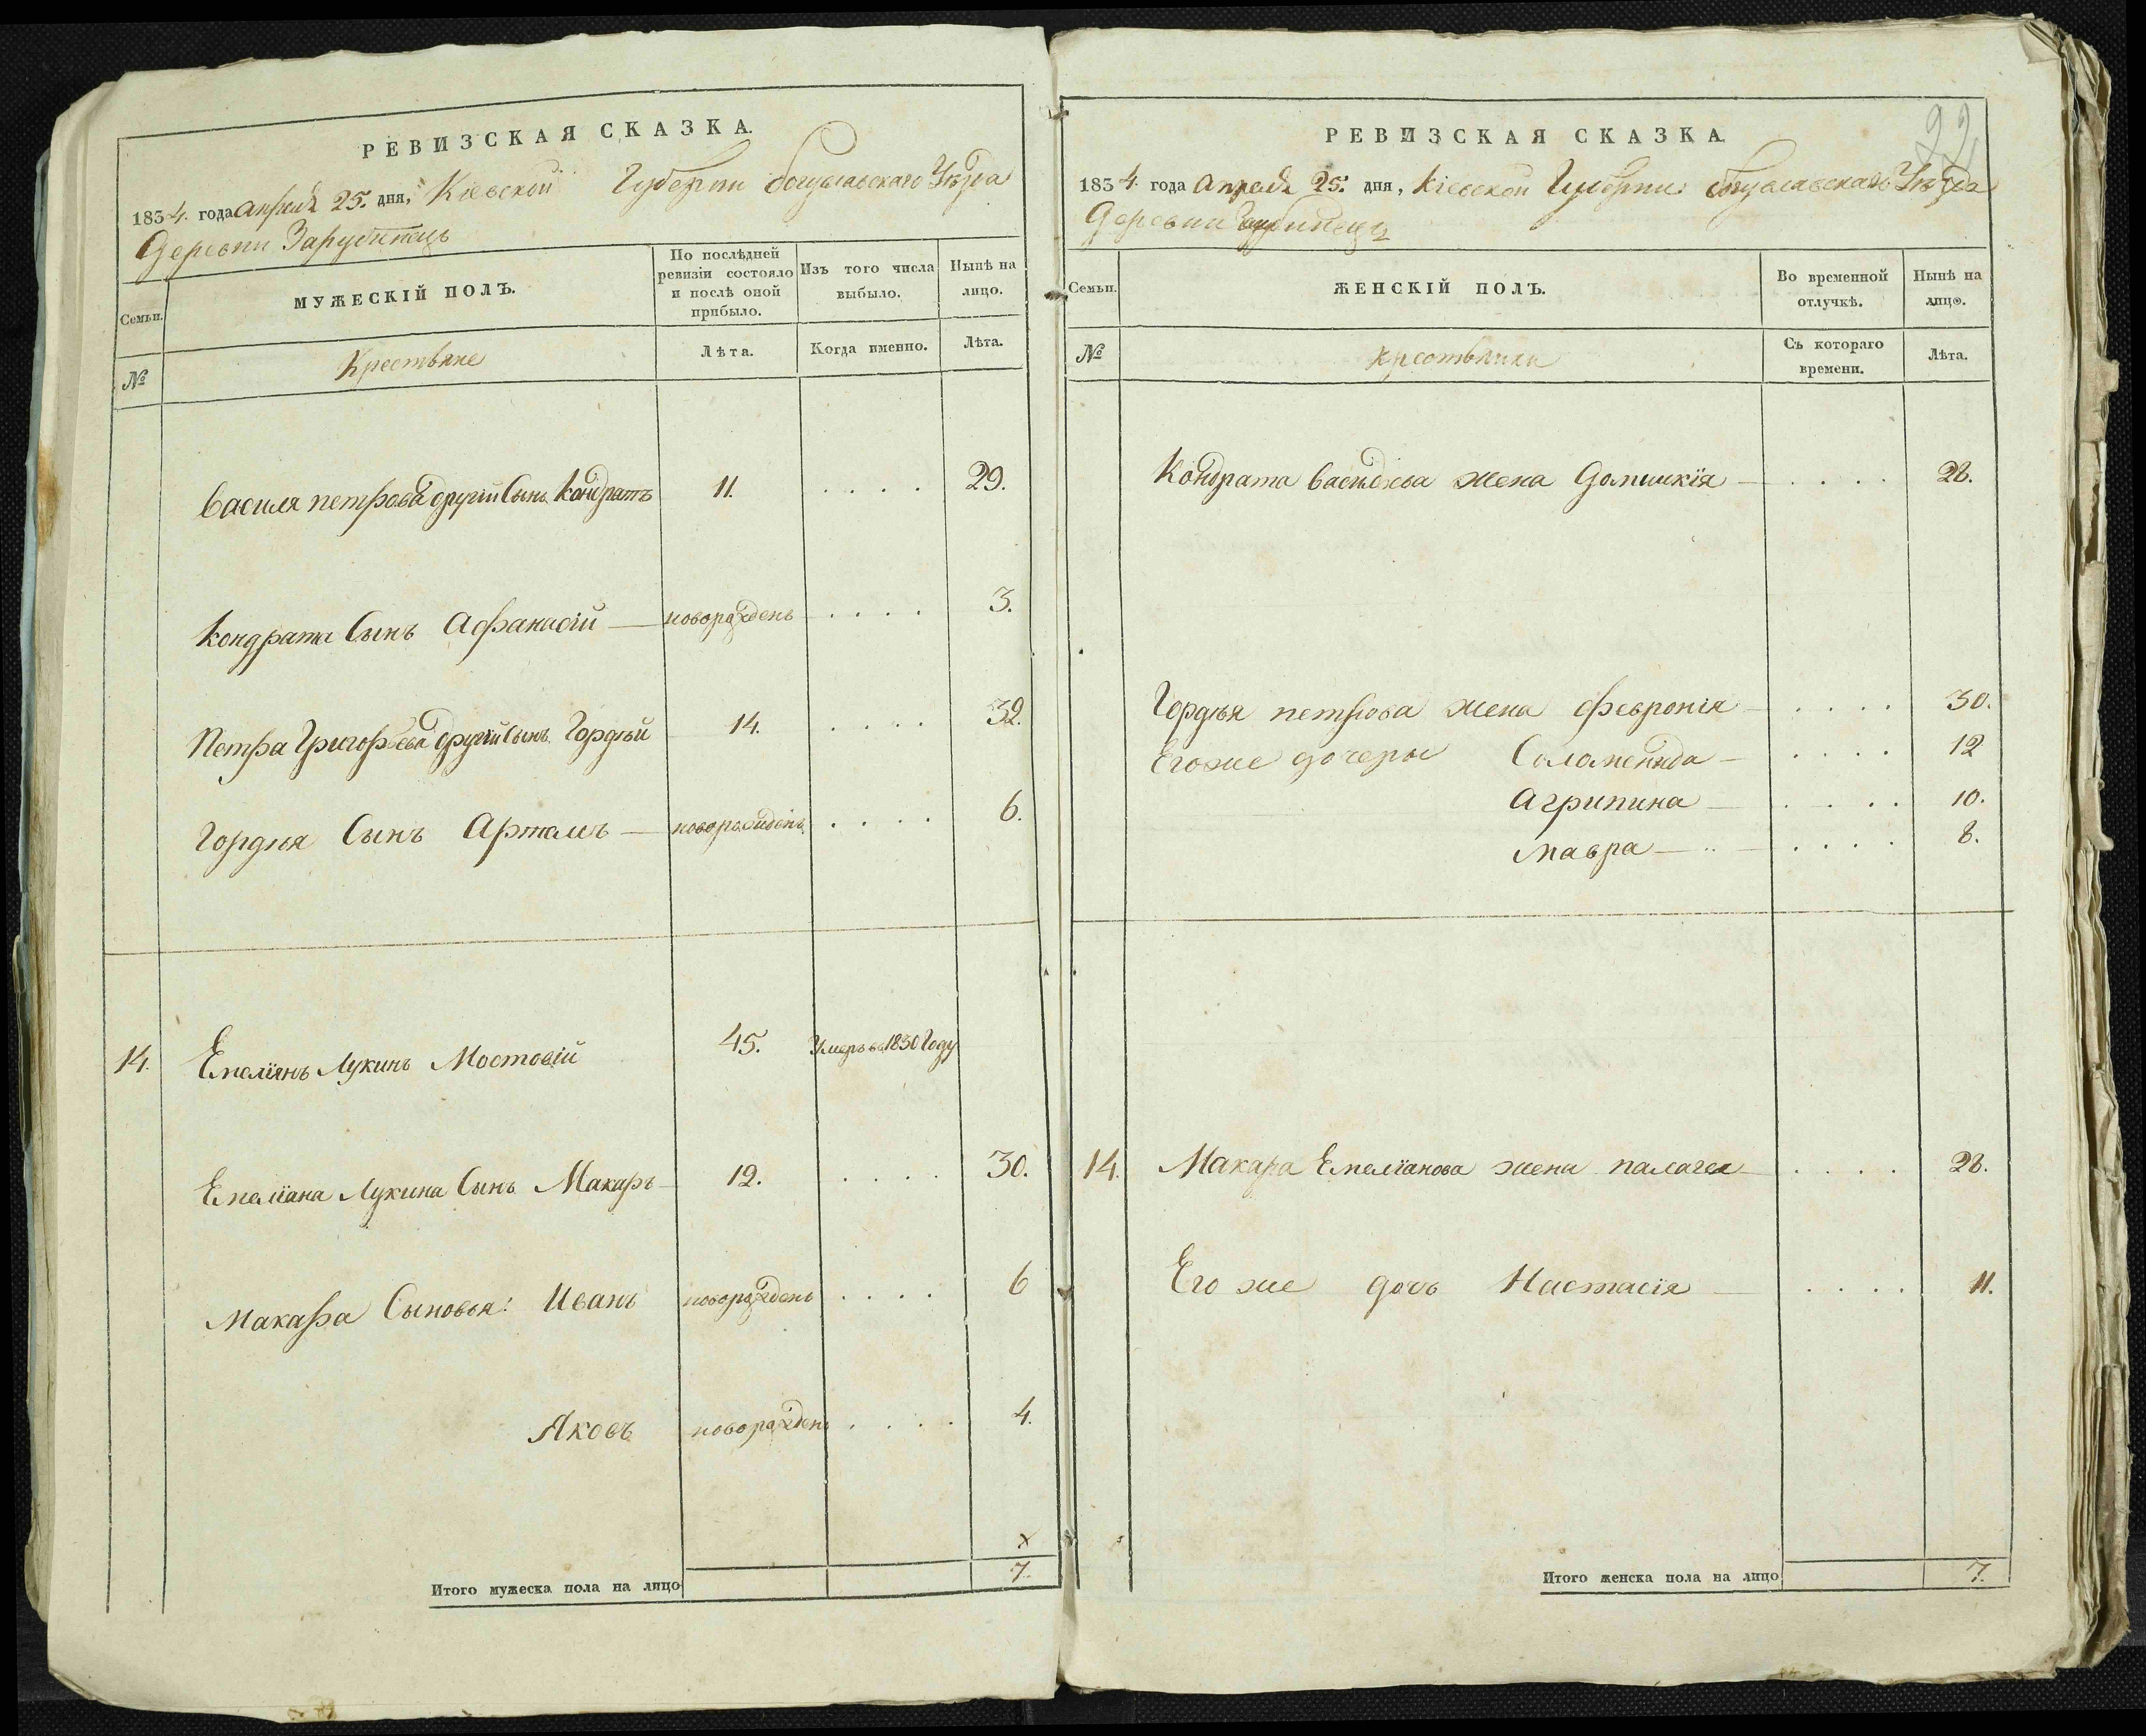 РЕВИЗСКАЯ СКАЗКА.
1834. года апреля 25. дня, Кіевской Губерніи богуславскаго Уѣзда
Деревни Зарубинецъ
Семьи.
МУЖЕСКІЙ ПОЛЪ.
По послѣдней ревизіи состояло и послѣ оной прибыло.
Изъ того числа выбыло.
Нынѣ на лицо.
№
Крестьяне
Лѣта.
Когда именно.
Лѣта.
Василя петрова другій Сынъ Кондратъ 11. . . . . 29.
Кондрата Сынъ Афанасій — новорожденъ . . . . 3.
Петра Григорьева другій Сынъ Гордѣй 14. . . . . 32.
Гордѣя Сынъ Артемъ — новорожденъ . . . . 6.
14. Емеліянъ Лукинъ Мостовій 45. Умеръ въ 1830 Году
Емеліана Лукина Сынъ Макаръ 12. . . . . 30.
Макара Сыновья: Иванъ новорожденъ . . . . 6
Яковъ новорожденъ . . . . 4.
х
Итого мужеска пола на лицо 7.
92
РЕВИЗСКАЯ СКАЗКА.
1834. года апреля 25. дня, Кіевской Губерніи богуславскаго Уѣзда
Деревни Зарубинецъ
Семьи.
ЖЕНСКІЙ ПОЛЪ.
Во временной отлучкѣ.
Нынѣ на лицо.
№
крестьянки
Съ котораго времени.
Лѣта.
Кондрата Васильева жена Домникія — . . . . 28.
Гордѣя петрова жена Февронія — . . . . 30.
Егоже дочеры Соломенида — . . . . 12
Агрипина — . . . . 10.
Мавра — . . . . 8.
14. Макара Емеліанова жена палагея . . . . 28.
Его же дочь Настасія — . . . . 11.
Итого женска пола на лицо 7.